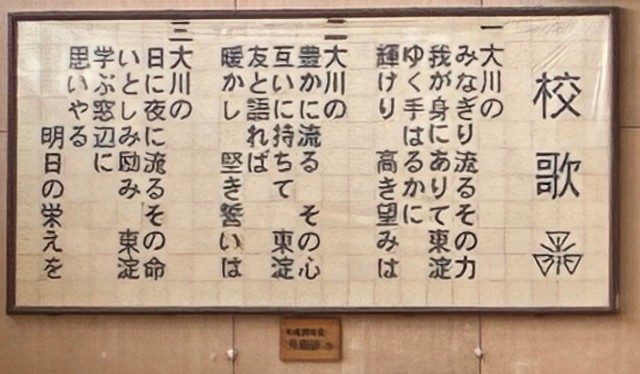 校歌
一
大川の
みなぎり流るその力
我が身にありて東淀
ゆく手はるかに
輝けり　高き望みは
二
大川の
豊かに流る　その心
互いに持ちて　東淀
友と語れば
暖かし　堅き誓いは
三
大川の
日に夜に流るその命
いとしみ励み　東淀
学ぶ窓辺に
思いやる
明日の栄えを